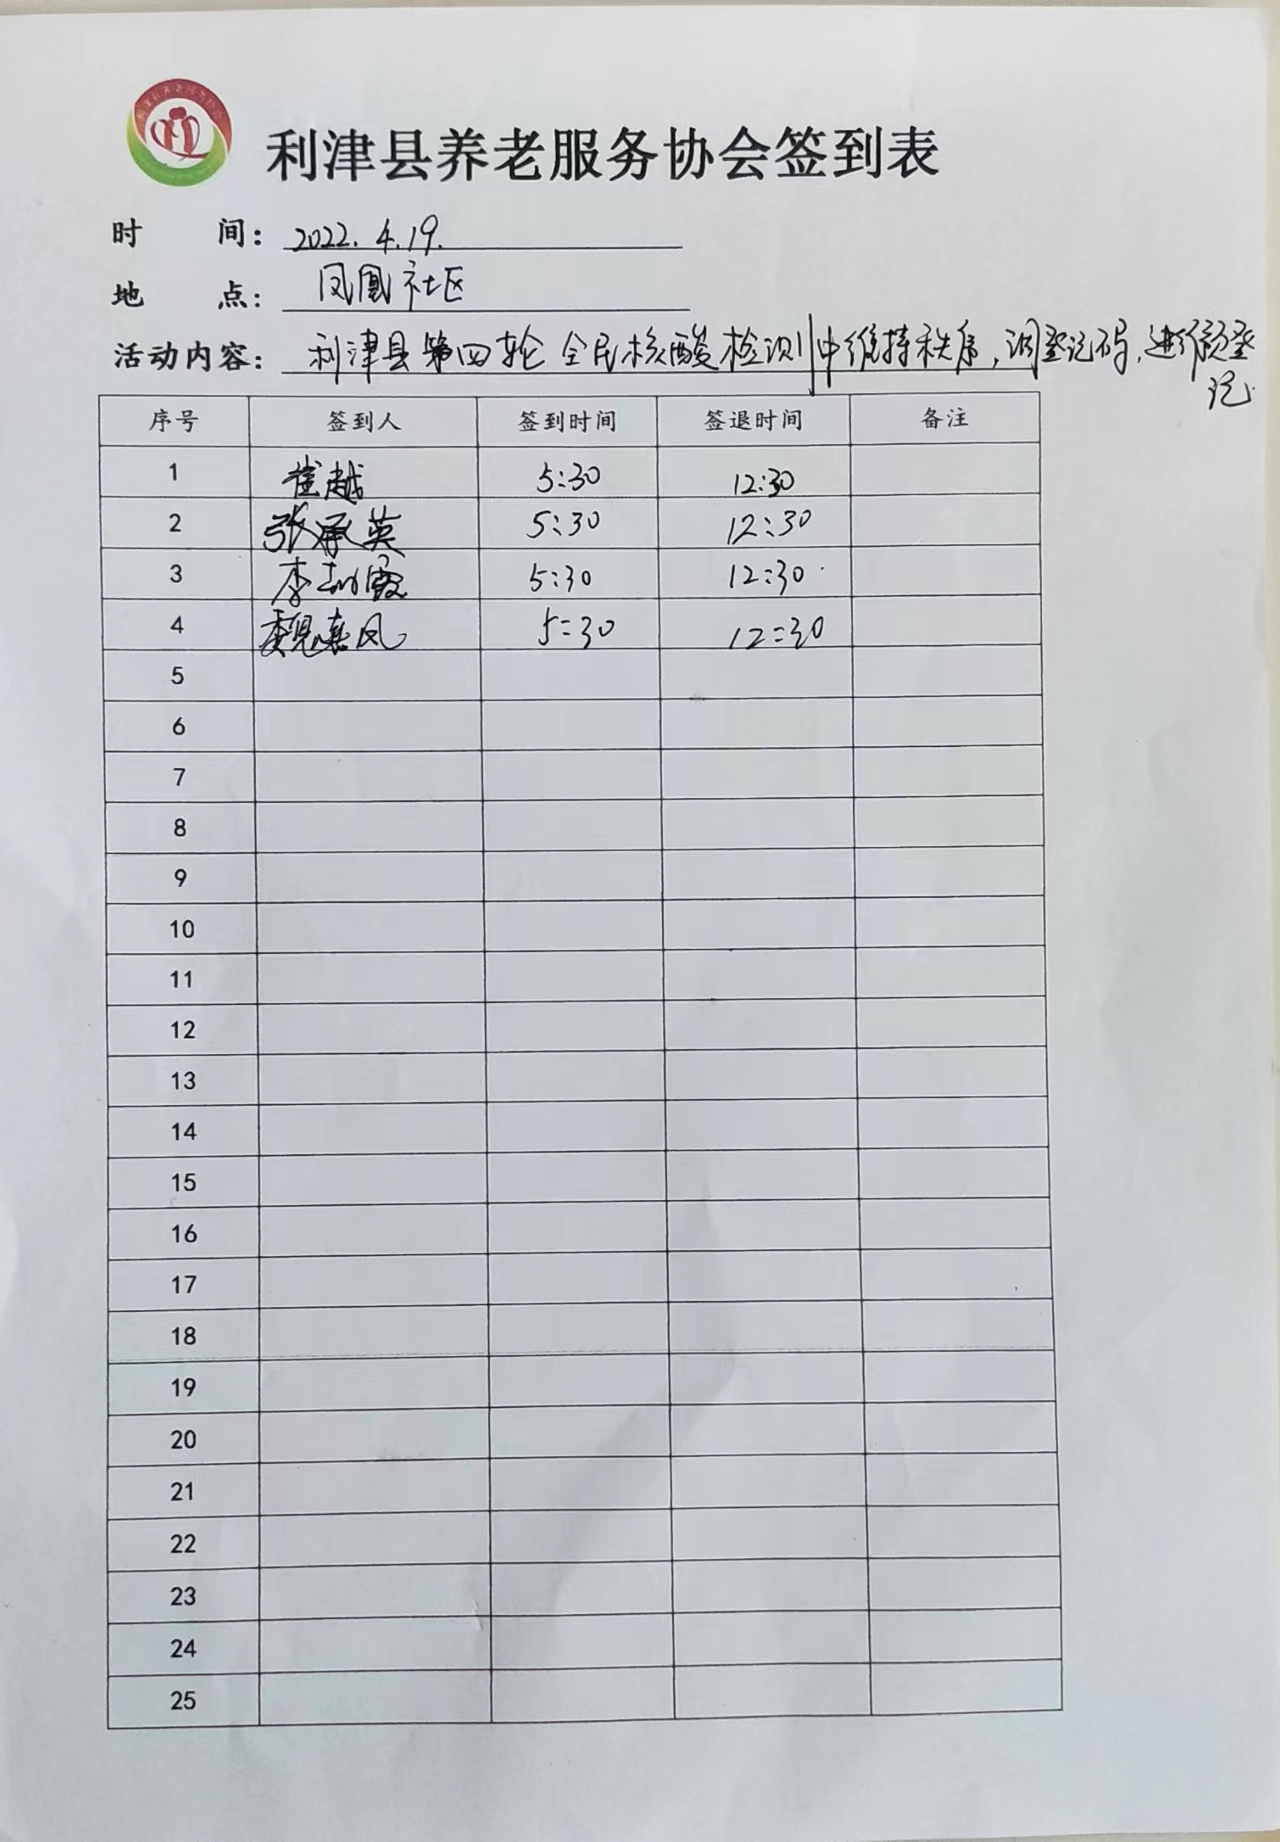 利津县养老服务协会签到表
时 间: 2022.4.19.
地 点: 凤凰社区
活动内容: 利津县第四轮全民核酸检测中维持秩序,调登记码,进行预登
记.
序号 签到人 签到时间 签退时间 备注
1 崔越 5:30 12:30
2 张承英 5:30 12:30
3 李 霞 5:30 12:30
4 魏 风 5:30 12:30
5
6
7
8
9
10
11
12
13
14
15
16
17
18
19
20
21
22
23
24
25